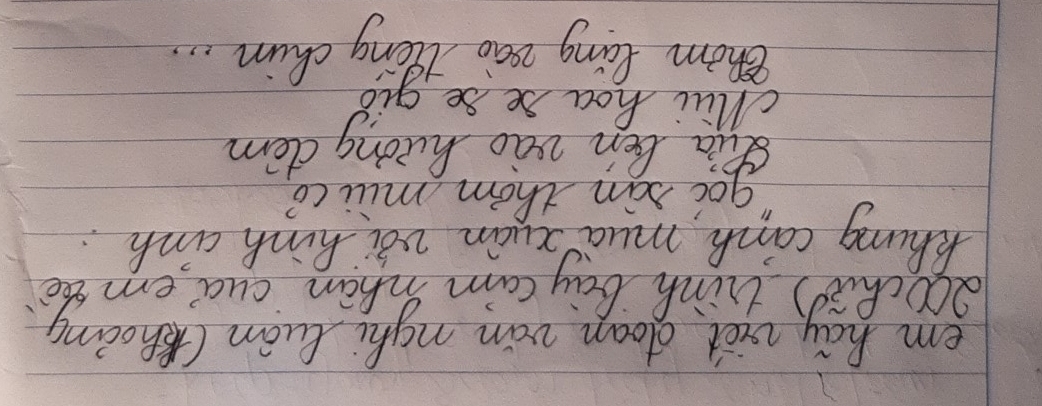 em hãy viết đoạn văn nghị luận (khoảng
200 chữ) trình bày cảm nhận của em về
khung cảnh mùa xuân với hình ảnh :
"góc sân thơm mùi cỏ
Lúa bén vào hương đêm
Mùi hoa se se gió
Thơm lựng vào tiếng chim ...